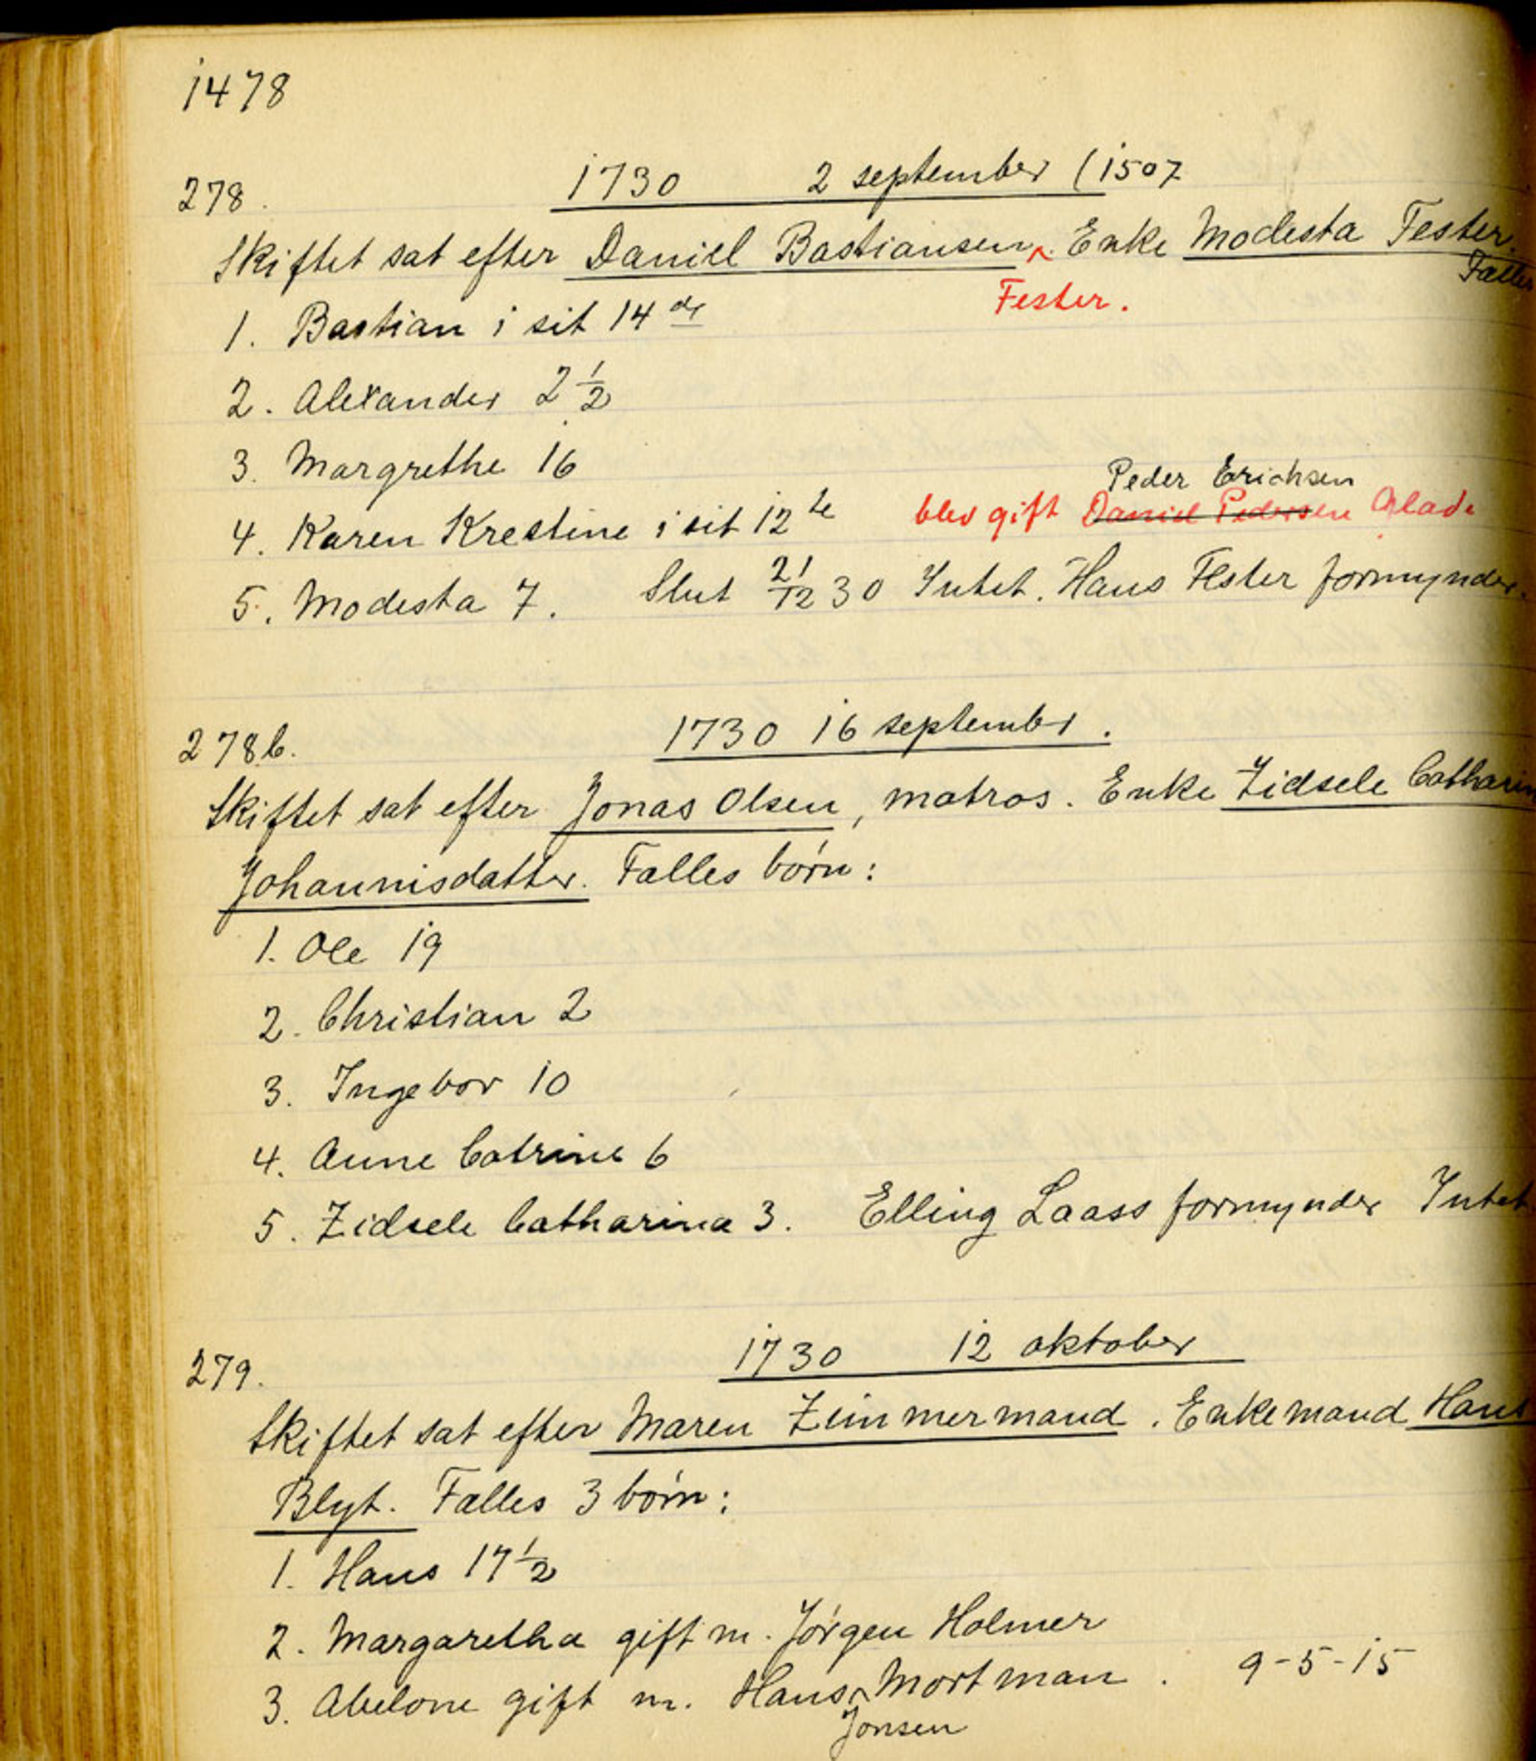 1478
278. 1730 2 september (1507
Skiftet sat efter Daniel Bastiansen ^ Enke Modesta Fester.
Fælles
Fester.
1. Bastian i sit 14 de
2. Alexander 2 1/2
3. Margrethe 16
Peder Erichsen
4. Karen Krestine i sit 12 te blev gift Daniel Pedersen Glad.
5. Modesta 7. Slut 21/12 30 Intet. Hans Fester formynder.
278b. 1730 16 september.
Skiftet sat efter Jonas Olsen, matros. Enke Zidsele Catharin
Johannisdatter. Fælles børn:
1. Ole 19
2. Christian 2
3. Ingebor 10
4. Anne Catrine 6
5. Zidsele Catharina 3. Elling Laass formynder Intet
279. 1730 12 oktober
Skiftet sat efter Maren Zimmermand. Enkemand Hans
Blyt. Fælles 3 børn:
1. Hans 17 1/2
2. Margaretha gift m. Jørgen Holmer
3. Abelone gift m. Hans ^ Mortman. 9-5-15
Jonsen